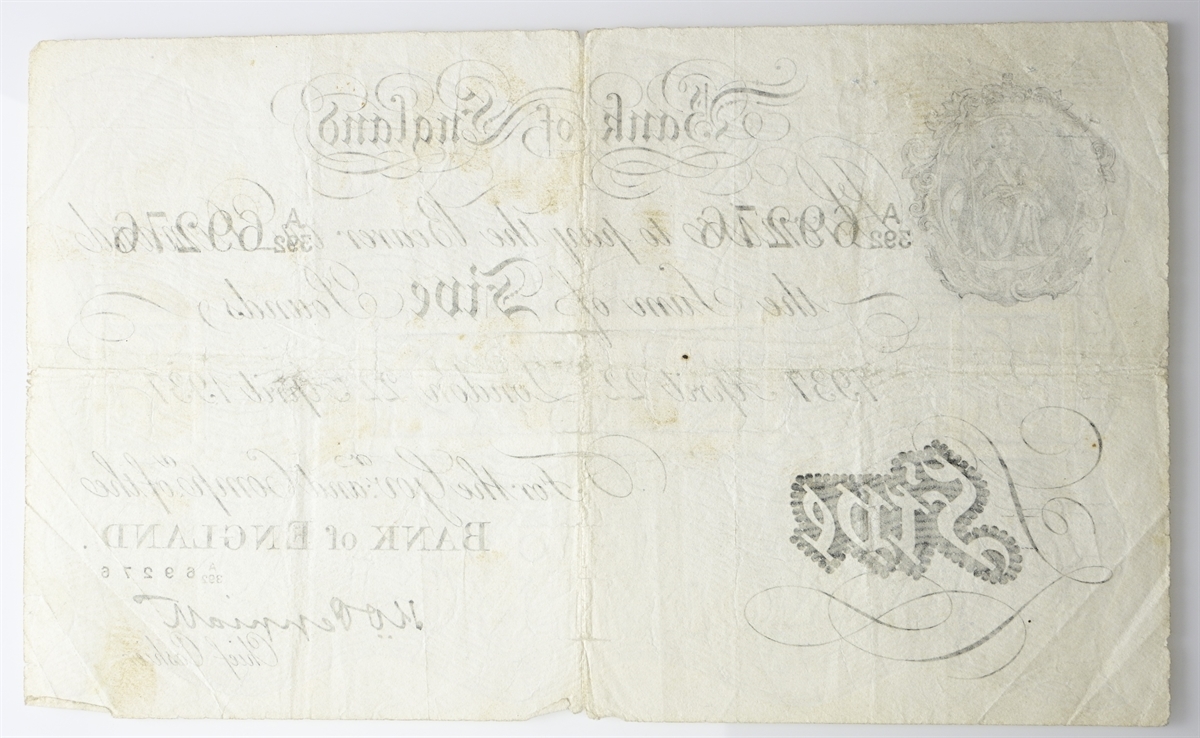 Bank of England
A/392 69276 to pay the Bearer A/392 69276
the Sum of Five Pounds
1937 April 22 London 22 April 1937
For the Gov.r and Comp.a of the
BANK of ENGLAND.
A/392 69276
Five
Chief Cashier